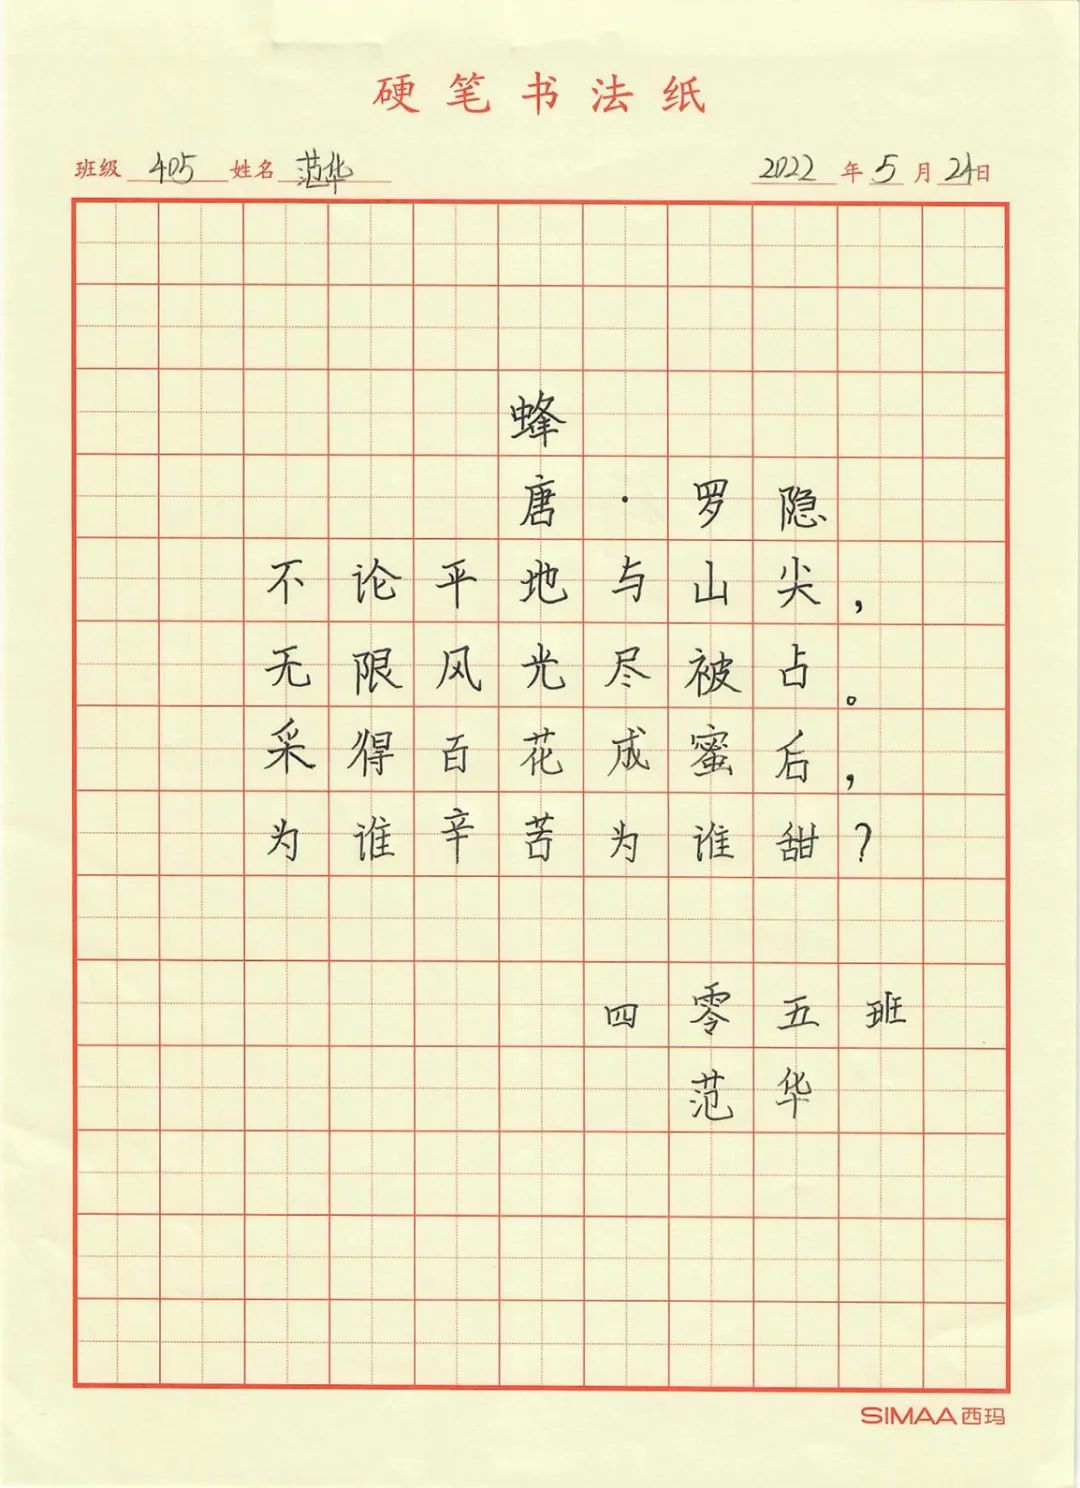 硬笔书法纸
班级 405 姓名 范华 2022年5月24日
蜂
唐·罗隐
不论平地与山尖，
无限风光尽被占。
采得百花成蜜后，
为谁辛苦为谁甜？
四零五班
范华
SIMAA西玛